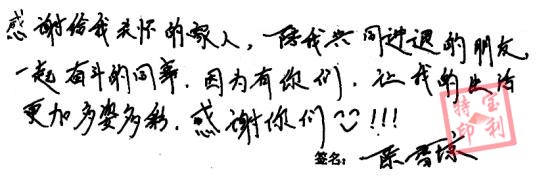 感谢给我关怀的家人，陪我共同进退的朋友，
一起奋斗的同事，因为有你们，让我的生活
更加多姿多彩，感谢你们!!!
宝利
特印
签名：